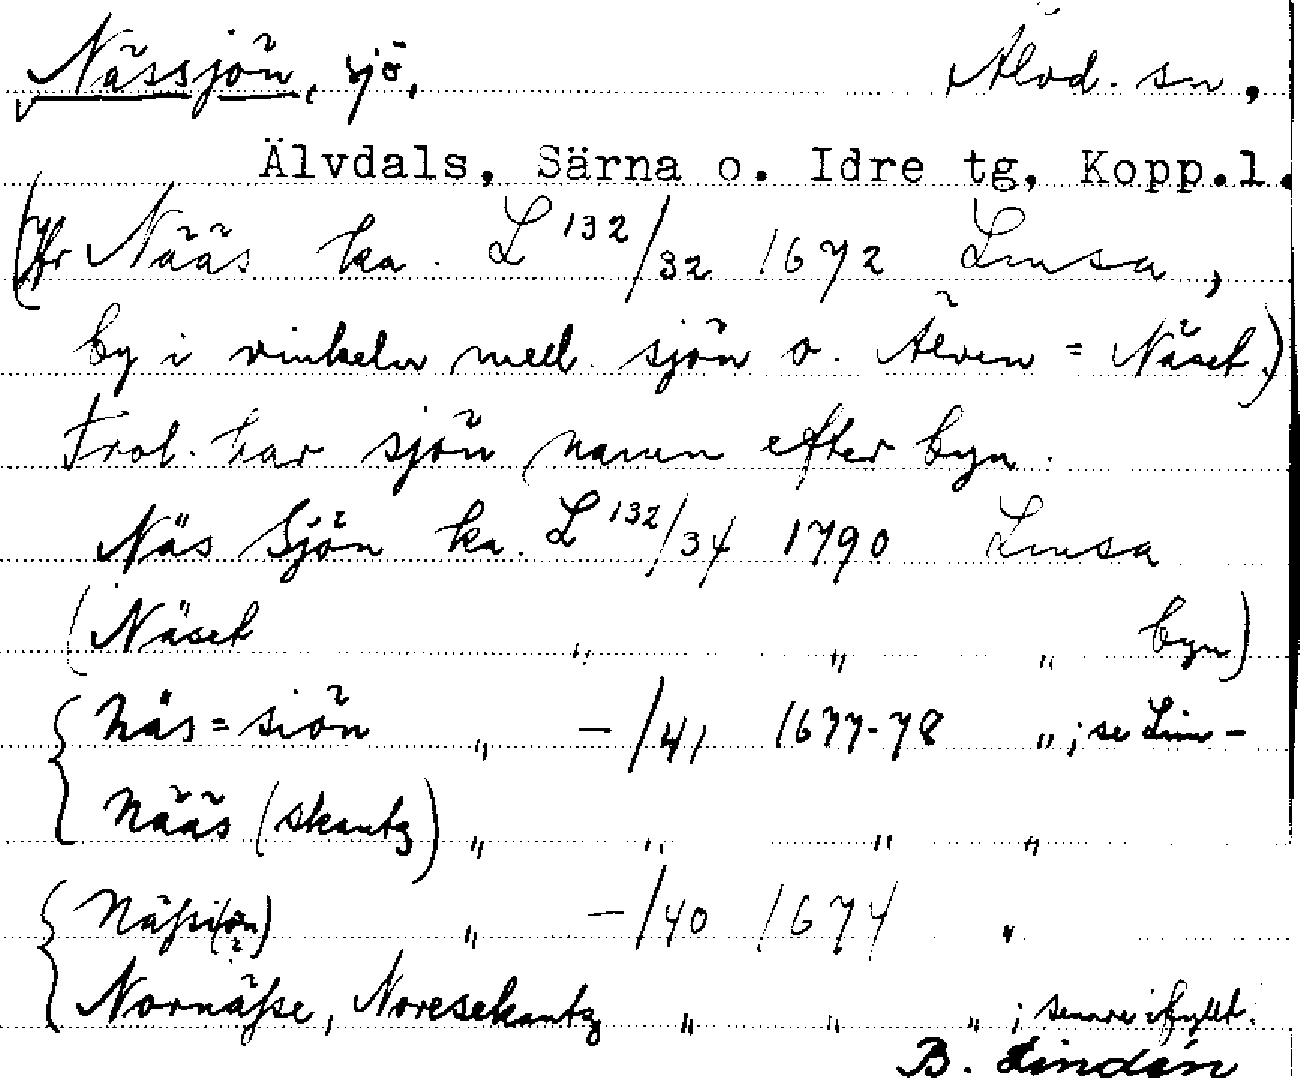 Nässjön, sjö, Älvd. sn,
Älvdals, Särna o. Idre tg, Kopp.l.
(Jfr Nääs ka. L 132/32 1672 Lmsa,
by i vinkeln med sjön o. Älven = Näset.)
Trol. har sjön namn efter byn.
Näs Sjön ka. L 132/34 1790 Lmsa
(Näset " " " byn)
Näs=siön " -/41 1677-78 " ; se Lim-
Nääs (skantz) " " " "
Näßi(ön) " -/40 1674 "
Nornäße, Noreskantz " " " ; senare ifyllt.
B. Lindén